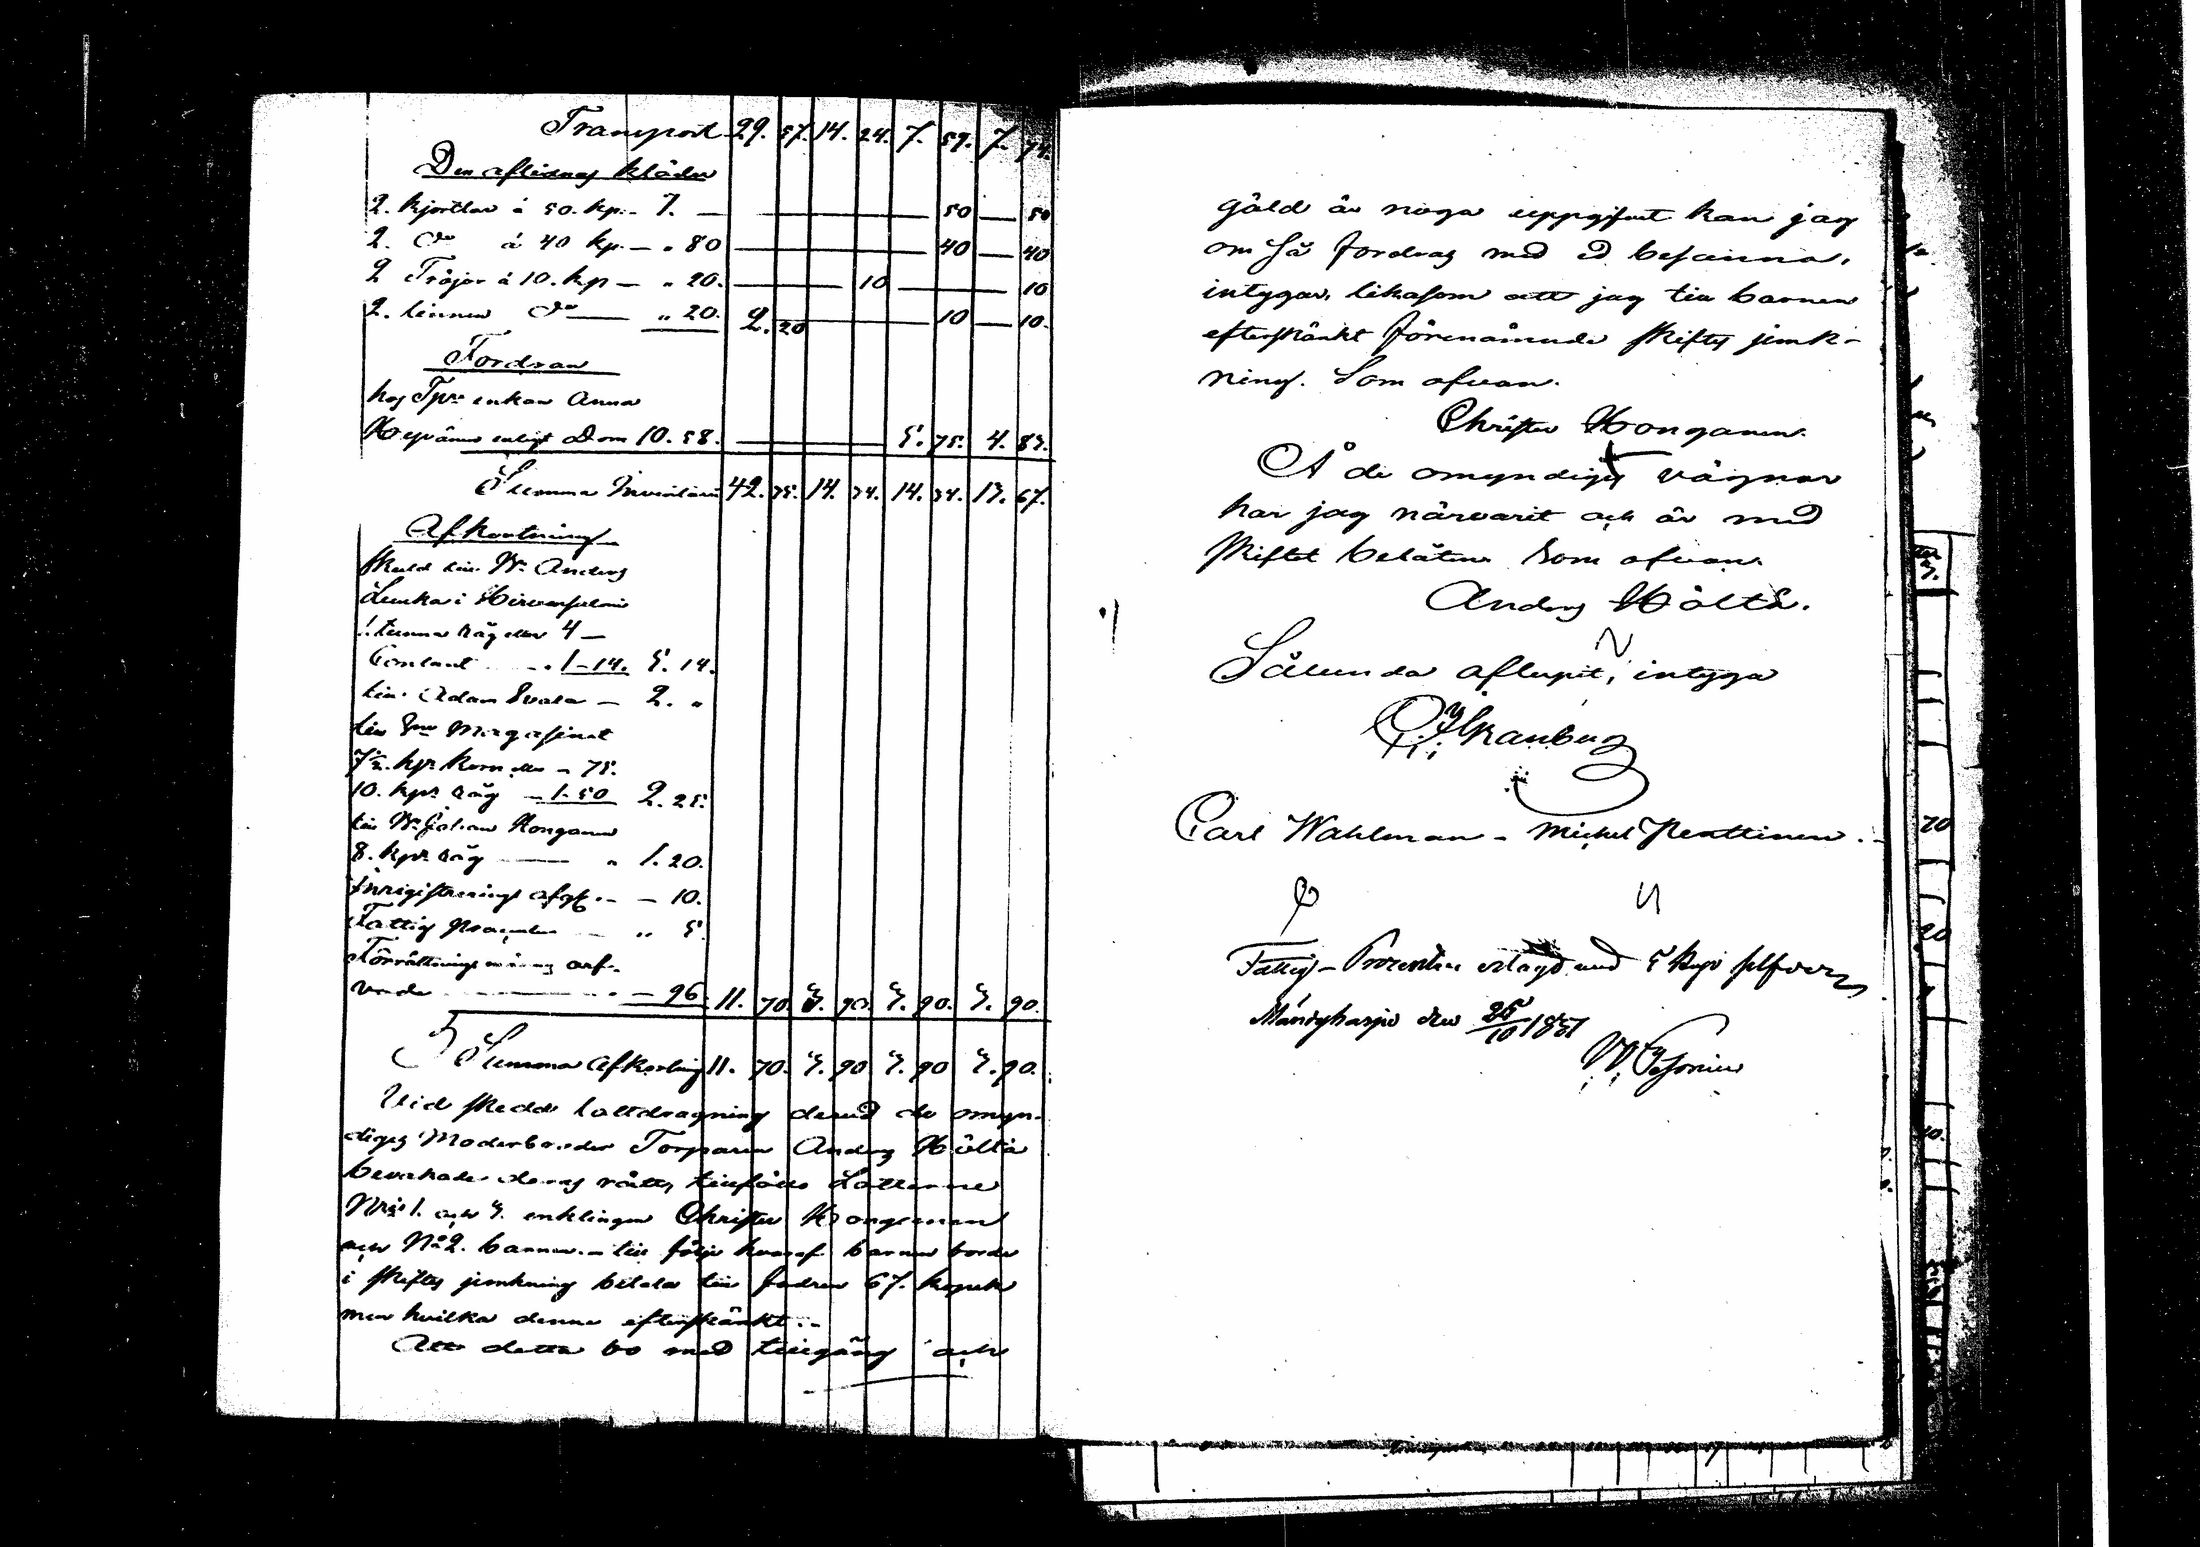 Transport 29. 57. 14. 24. 7. 59. 7. 74.
Den aflidnes kläder
2. kjortlar á 50. kp. - 1. — 50 — 50
2. do á 40 kp. — „ 80 — 40 — 40
2 Tröjor á 10. kp — „ 20. — 10 — 10
2. linnen do — „ 20. 2. 20 — 10 — 10.
Fordran
hos Tprs enkan Anna
enligt Dom 10. 58. — 5. 75. 4. 83.
Summa Inventarii 42. 75. 14. 34. 14. 34. 13. 67.
Afkortning
skuld till Bn Anders
Lunka i Hirvensalmi
1. tunna råg eller 4 —
Contant - . 1-14. 5. 14.
till Adam — 2. „
till Magasinet
7½. kpr korn eller - 75.
10. kpr råg - 1. 50 2. 25.
till Bn Johan Konganen
8. kpr råg — „ 1. 20.
Inregistrerings afgft. - — 10.
Fattig procenten — „ 5.
Förrättnings männens arf-
vode — 96. 11. 70. 3. 90. 3. 90. 3. 90.
Summa afkortning 11. 70. 3. 90 3. 90 3. 90.
Vid skedd lottdragning dervid de omyn-
diges Moderbroder Torparen Anders Hölttä
bevakade deras rätt, tillföllo Lotterne
Nris 1. och 3. enklingen Christer Konganen
och No 2. barnen. - till följe hvaraf barnen borde
i skiftes jemkning betala till fadren 67. kopek
men hvilka denne efterskänkt. -
Att detta bo med tillgång och
gäld är noga uppgifvit kan jag
om så fordras med ed besanna,
intygar, likasom att jag till barnen
efterskänkt förenämnde skiftes jemk-
ning. Som ofvan.
Christer Konganen.
Å de omyndiges vägnar
har jag närvarit och är med
skiftet belåten Som ofvan.
Anders Hölttä.
Sålunda aflupit, intyga
Carl Wahlman - Michel Penttinen. -
Fattig-Procenten erlagd med 5 kop silfver
Mändyharju den 25/10 1851